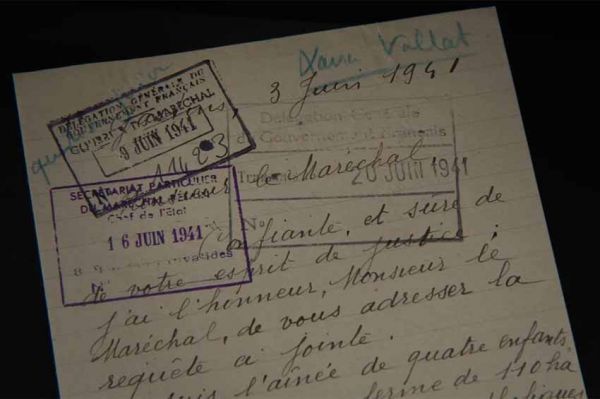 Xavier Vallat
3 Juin 1941
DÉLÉGATION GÉNÉRALE DU
GOUVERNEMENT FRANÇAIS
CABINET DU MARÉCHAL
9 JUIN 1941
11423
Délégation Générale
du Gouvernement Français
20 JUIN 1941
No
SECRÉTARIAT PARTICULIER
DU MARÉCHAL PÉTAIN
Chef de l'Etat
16 JUIN 1941
N°
Monsieur le Maréchal
Confiante, et sure de
de votre esprit de justice,
j'ai l'honneur, Monsieur le
Maréchal, de vous adresser la
requête ci jointe.
suis l'aînée de quatre enfants
ferme de 110 ha